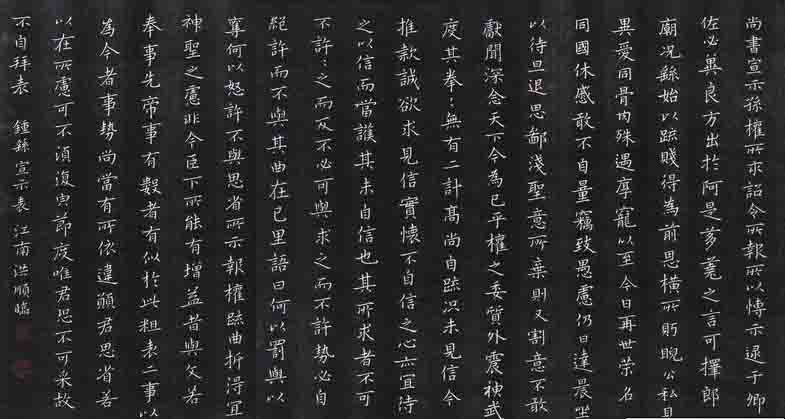 尚書宣示孫權所求詔令所報所以博示逮于卿
佐必異良方出於阿是芻蕘之言可擇郎
廟況繇始以疏賤得為前恩橫所眄睨公私見
異愛同骨肉殊遇厚寵以至今日再世榮名
同國休慼敢不自量竊致愚慮仍日達晨坐
以待旦退思鄙淺聖意所棄則又割意不敢
獻聞深念天下今為已平權之委質外震神武
度其拳:無有二計高尚自疏況未見信今
推款誠欲求見信實懷不自信之心亦宜待
之以信而當護其未自信也其所求者不可
不許:之而反不必可與求之而不許勢必自
絕許而不與其曲在己里語曰何以罰與以
奪何以怒許不與思省所示報權疏曲折得宜
神聖之慮非今臣下所能有增益昔與文若
奉事先帝事有數者有似於此粗表二事以
為今者事勢尚當有所依違願君思省若
以在所慮可不須復白節度唯君恐不可采故
不自拜表 鍾繇宣示表 江南洪順臨